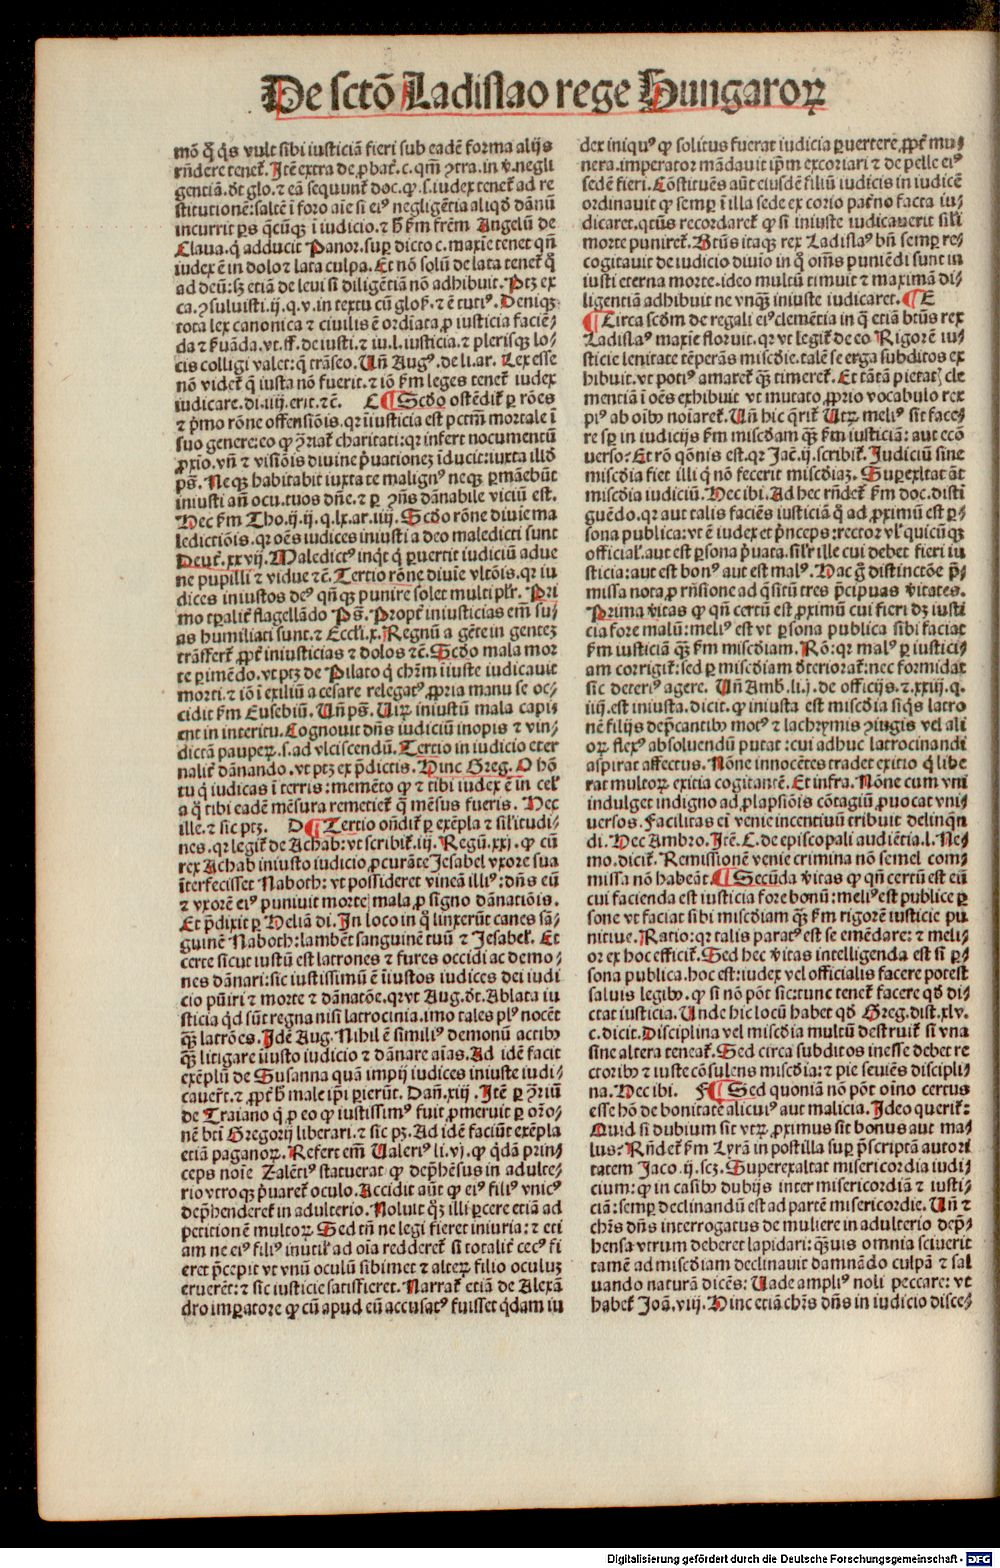 De sctō Ladislao rege Hungaroꝝ
mō q̄ q̄s vult sibi iusticiā fieri sub eadē forma alijs
rn̄dere teneť. Itē extra de ꝓbať. c. qm̄ ꝯtra. in v̄. negli
gentiā. dt̄ glo. ⁊ eā sequunť doc. ꝙ .s. iudex teneť ad re
stitutionē: saltē ī foro aīe si eiꝰ negligētia aliqd̓ dānū
incurrit ꝑs q̄cūqꝫ ī iudicio. ⁊ h̄ ẜm frēm Angelū de
Claua. q̄ adducit Panor. suꝑ dicto c. maxīe tenet qn̄
iudex ē in dolo ⁊ lata culpa. Et nō solū de lata teneť q̄
ad deū: sꝫ etiā de leui si diligētiā nō adhibuit. Ptꝫ ex
ca. ꝯsuluisti. ij. q. v. in textu cū gloẜ. ⁊ ē tutiꝰ. Deniqꝫ
tota lex canonica ⁊ ciuilis ē ordīata ꝓ iusticia faciē⸗
da ⁊ ẜuāda. vt. ff. de iusti. ⁊ iu. l. iusticia. ⁊ plerisqꝫ lo⸗
cis colligi valet: q̄ trāseo. Un̄ Augꝰ. de li. ar. Lex esse
nō videť q̄ iusta nō fuerit. ⁊ iō ẜm leges teneť iudex
iudicare. di. iiij. erit. ⁊ē. C ¶ Scd̓o ostēdiť ꝑ rōes
⁊ p̄mo rōne offensiōis. qr īiusticia est pctm̄ mortale ī
suo genere: eo ꝙ ꝯriať charitati: qr infert nocumentū
ꝓxio. vn̄ ⁊ visiōis diuine p̄uationeꝫ īducit: iuxta illd̓
ps̄. Neqꝫ habitabit iuxta te malignꝰ neqꝫ ꝑmaebūt
iniusti an̄ ocu. tuos dn̄e. ⁊ ꝑ ꝯn̄s dānabile viciū est.
Hec ẜm Tho. ij. ij. q. lx. ar. iiij. Scd̓o rōne diuie ma
ledictiōis. qr oēs iudices iniusti a deo maledicti sunt
Deuť. xxvij. Maledictꝰ inqt̓ q̄ ꝑuertit iudiciū adue
ne pupilli ⁊ vidue ⁊ē. Tertio rōne diuīe vltōis. qr iu
dices iniustos deꝰ qn̄qꝫ punire solet multiplr̄. Pri
mo tꝑalit̓ flagellādo Ps̄. Propt̓ iniusticias em̄ su⸗
as humiliati sunt. ⁊ Eccli. x. Regnū a gēte in genteꝫ
trāsferť ꝓpt̓ iniusticias ⁊ dolos ⁊ē. Scd̓o mala mor
te ꝑimēdo. vt ptꝫ de Pilato q̄ chr̄m īiuste iudicauit
morti. ⁊ iō ī exiliū a cesare relegatꝰ ꝓpria manu se oc⸗
cidit ẜm Eusebiū. Un̄ ps̄. Uiꝝ iniustū mala capi⸗
ent in interitu. Cognouit dn̄s iudiciū inopis ⁊ vin⸗
dictā paupeꝝ. s. ad vlciscendū. Tertio in iudicio eter
nalit̓ dānando. vt ptꝫ ex p̄dictis. Hinc Greg. O hō
tu q̄ iudicas ī terris: memēto ꝙ ⁊ tibi iudex ē in cel̓
a q̄ tibi eadē mēsura remetieť q̄ mēsus fueris. Hec
ille. ⁊ sic ptꝫ. D ¶ Tertio on̄diť ꝑ exēpla ⁊ sil̓itudi⸗
nes. qr legiť de Achab: vt scribiť. iij. Regū. xxj. ꝙ cū
rex Achab iniusto iudicio ꝓcurāte Jesabel vxore sua
īterfecisset Naboth: vt possideret vineā illiꝰ: dn̄s eū
⁊ vxorē eiꝰ puniuit morte mala ꝓ signo dānatiōis.
Et p̄dixit ꝑ Heliā di. In loco in q̄ linxerūt canes sā⸗
guinē Naboth: lambēt sanguinē tuū ⁊ Jesabeľ. Et
certe sicut iustū est latrones ⁊ fures occidi ac demo⸗
nes dānari: sic iustissimū ē īiustos iudices dei iudi
cio pūiri ⁊ morte ⁊ dānatōe. qr vt Aug. dt̄. Ablata iu
sticia qd̓ sūt regna nisi latrocinia. imo tales plꝰ nocēt
qꝫ̄ latrōes. Idē Aug. Nihil ē similiꝰ demonū actibꝰ
qꝫ̄ litigare īiusto iudicio ⁊ dānare aīas. Ad idē facit
exēplū de Susanna quā impij iudices iniuste iudi⸗
cauer̄t. ⁊ ꝓpt̓ h̄ male ip̄i ꝑierūt. Dan̄. xiij. Itē ꝑ ꝯriū
de Traiano q̄ ꝓ eo ꝙ iustissimꝰ fuit ꝓmeruit ꝑ or̄o⸗
nē bt̄i Gregorij liberari. ⁊ sic pꝫ. Ad idē faciūt exēpla
etiā paganoꝝ. Refert em̄ Ualeriꝰ li. vj. ꝙ q̄dā prin⸗
ceps noīe Zalētiꝰ statuerat ꝙ dep̄hēsus in adulte⸗
rio vtroqꝫ p̄uareť oculo. Accidit aūt ꝙ eiꝰ filiꝰ vnicꝰ
dep̄hendereť in adulterio. Noluit qꝫ illi ꝑcere etiā ad
petitionē multoꝝ. Sed tn̄ ne legi fieret iniuria: ⁊ eti
am ne eiꝰ filiꝰ inutil̓ ad oīa reddereť si totalit̓ cecꝰ fi
eret p̄cepit vt vnū oculū sibimet ⁊ alteꝝ filio oculuꝫ
eruerēt: ⁊ sic iusticie satisfieret. Narrať etiā de Alexā
dro imꝑatore ꝙ cū apud eū accusatꝰ fuisset q̄dam iu
dex iniquꝰ ꝙ solitus fuerat iudicia ꝑuertere ꝓpt̓ mu⸗
nera. imperator mādauit ip̄m excoriari ⁊ de pelle eiꝰ
sedē fieri. Cōstituēs aūt eiusdē filiū iudicis in iudicē
ordinauit ꝙ semꝑ ī illa sede ex corio pat̓no facta iu⸗
dicaret. qtūs recordareť ꝙ si iniuste iudicauerit sil̓i
morte punireť. Bt̄us itaqꝫ rex Ladislaꝰ bn̄ semꝑ re⸗
cogitauit de iudicio diuīo in q̄ oīm̄s puniēdi sunt in
iusti eterna morte. ideo multū timuit ⁊ maximā di⸗
ligentiā adhibuit ne vnqꝫ̄ iniuste iudicaret. ¶ E
¶ Circa scd̓m de regali eiꝰ clemētia in q̄ etiā bt̄us rex
Ladislaꝰ maxīe floruit. qr vt legiť de eo Rigorē iu⸗
sticie lenitate tēperās misc̄die. talē se erga subditos ex
hibuit. vt potiꝰ amareť qꝫ̄ timereť. Et tātā pietatꝭ cle
mentiā ī oēs exhibuit vt mutato ꝓprio vocabulo rex
piꝰ ab oibꝰ noīareť. Un̄ hic q̄riť Utꝝ meliꝰ sit face⸗
re sꝑ in iudicijs ẜm misc̄dam qꝫ̄ ẜm iusticiā: aut ecō
verso: Et rō q̄ōnis est. qr Jac̄. ij. scribiť. Judiciū sine
misc̄dia fiet illi q̄ nō fecerit misc̄diaꝫ. Suꝑexltat āt
misc̄dia iudiciū. Hec ibi. Ad hec rn̄deť ẜm doc. distī
guēdo. qr aut talis faciēs iusticiā q̄ ad ꝓximū est ꝑ⸗
sona publica: vt ē iudex et p̄nceps: rector vľ quicūqꝫ
officiaľ. aut est ꝑsona p̄uata. sil̓r ille cui debet fieri iu
sticia: aut est bonꝰ aut est malꝰ. Hac g̊ distinctōe p̄⸗
missa nota ꝓ rn̄sione ad q̄sitū tres p̄cipuas v̓itates.
Prima v̓itas ꝙ qn̄ certū est ꝓximū cui fieri dꝫ iusti
cia fore malū: meliꝰ est vt ꝑsona publica sibi faciat
ẜm iusticiā qꝫ̄ ẜm misc̄diam. Rō: qr malꝰ ꝑ iustici⸗
am corrigiť: sed ꝑ misc̄diam d̓teriorať: nec formidat
sic deteriꝰ agere. Un̄ Amb. li. j. de officijs. ⁊. xxiij. q.
iiij. est iniusta. dicit. ꝙ iniusta est misc̄dia siq̄s latro
nē filijs dep̄cantibꝰ motꝰ ⁊ lachrymis ꝯiugis vel ali
oꝝ flexꝰ absoluendū putat: cui adhuc latrocinandi
aspirat affectus. Nōne innocētes tradet exitio q̄ libe
rat multoꝝ exitia cogitantē. Et infra. Nōne cum vni
indulget indigno ad ꝓlapsiōis cōtagiū ꝓuocat vni⸗
versos. Facilitas eī venie incentiuū tribuit delinqn̄
di. Hec Ambro. Itē. C. de episcopali audiētia. l. Ne⸗
mo. diciť. Remissionē venie crimina nō semel com⸗
missa nō habeāt. ¶ Secūda v̓itas ꝙ qn̄ certū est eū
cui facienda est iusticia fore bonū: meliꝰ est publice ꝑ
sone vt faciat sibi misc̄diam qꝫ̄ ẜm rigorē iusticie pu
nitiue. Ratio: qr talis paratꝰ est se emēdare: ⁊ meli⸗
or ex hoc efficiť. Sed hec v̓itas intelligenda est si ꝑ⸗
sona publica. hoc est: iudex vel officialis facere potest
saluis legibꝰ. ꝙ si nō pōt sic: tunc teneť facere qd̓ di⸗
ctat iusticia. Unde hic locū habet qd̓ Greg. dist. xlv.
c. dicit. Disciplina vel misc̄dia multū destruiť si vna
sine altera teneať. Sed circa subditos inesse debet re
ctoribꝰ ⁊ iuste cōsulens misc̄dia: ⁊ pie seuiēs discipli⸗
na. Hec ibi. F ¶ Sed quoniā nō pōt oīno certus
esse hō de bonitate alicuiꝰ aut malicia. Ideo queriť:
Quid si dubium sit vtꝝ ꝓximus sit bonus aut ma⸗
lus: Rn̄deť ẜm Lyrā in postilla suꝑ p̄scriptā autori
tatem Jaco. ij. scꝫ. Superexaltat misericordia iudi⸗
cium: ꝙ in casibꝰ dubijs inter misericordiā ⁊ iusti⸗
ciā: semꝑ declinandū est ad partē misericordie. Un̄ ⁊
chr̄s dn̄s interrogatus de muliere in adulterio dep̄⸗
hensa vtrum deberet lapidari: qꝫ̄uis omnia sciuerit
tamē ad misc̄diam declinauit damnādo culpā ⁊ sal
uando naturā dicēs: Uade ampliꝰ noli peccare: vt
habeť Joā. viij. Hinc etiā chr̄s dn̄s in iudicio disce⸗
Digitalisierung gefördert durch die Deutsche Forschungsgemeinschaft - DFG